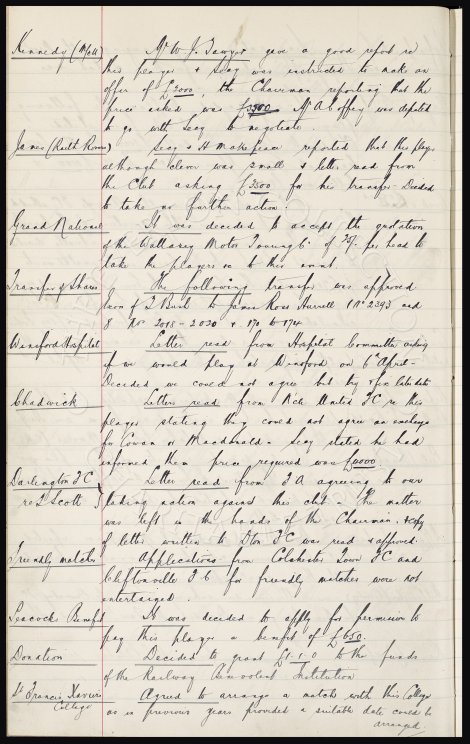 Kennedy (Moll) Mr W. J. Sawyer gave a good report re
this player & Secy was instructed to make an
offer of £3000, the Chairman reporting that the
price asked was Mr A Coffey was deputed
to go with Secy to negotiate.
James (Raith Rovers) Secy & H Makepeace reported that this player
although clever was small & letter read from
the Club asking £3500 for his transfer. Decided
to take no further action.
Grand National It was decided to accept the quotation
of the Wallasey Motor Touring Co of 7/- per head to
take the players to this event
Transfer of Shares The following transfer was approved
from J Bush to James Ross Hurrell 1 No 2393 and
8 Nos 2018 - 2030 & 170 to 174
Winsford Hospital Letter read from Hospital Committee asking
if we would play at Winsford on 6th April -
Decided we could not agree but try & fix later date
Chadwick Letters read from N'cle United F.C re this
player stating they could not agree an exchange
for Cowan or Macdonald - Secy stated he had
informed them price required was £4000.
Darlington F.C Letter read from F A agreeing to our
re L Scott taking action against this club - The matter
was left in the hands of the Chairman. & copy
of letter written to D'ton F.C was read & approved.
Friendly matches Applications from Colchester Town F.C and
Cliftonville F.C for friendly matches were not
entertained.
Peacocks Benefit It was decided to apply for permission to
pay this player a benefit of £650.
Donation Decided to grant to the funds
of the Railway Benevolent Institution
St Francis Xaviers Agreed to arrange a match with this College
College as in previous years provided a suitable date could be
arranged.